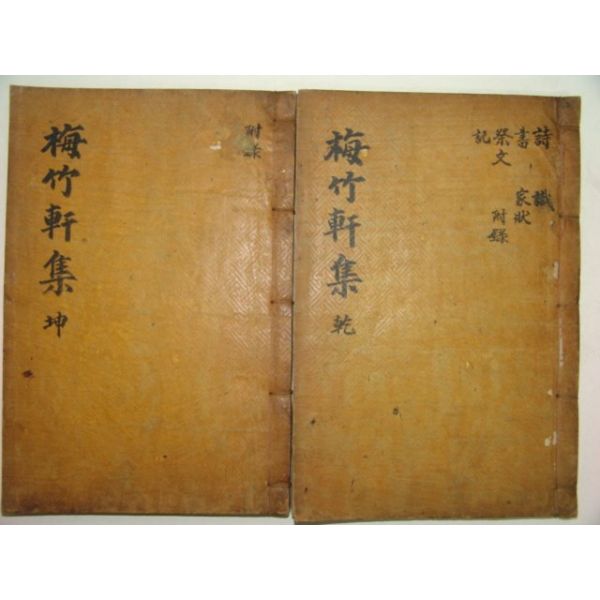 詩 識
書 家狀
祭文 附錄
記
梅竹軒集 乾
附錄
梅竹軒集 坤